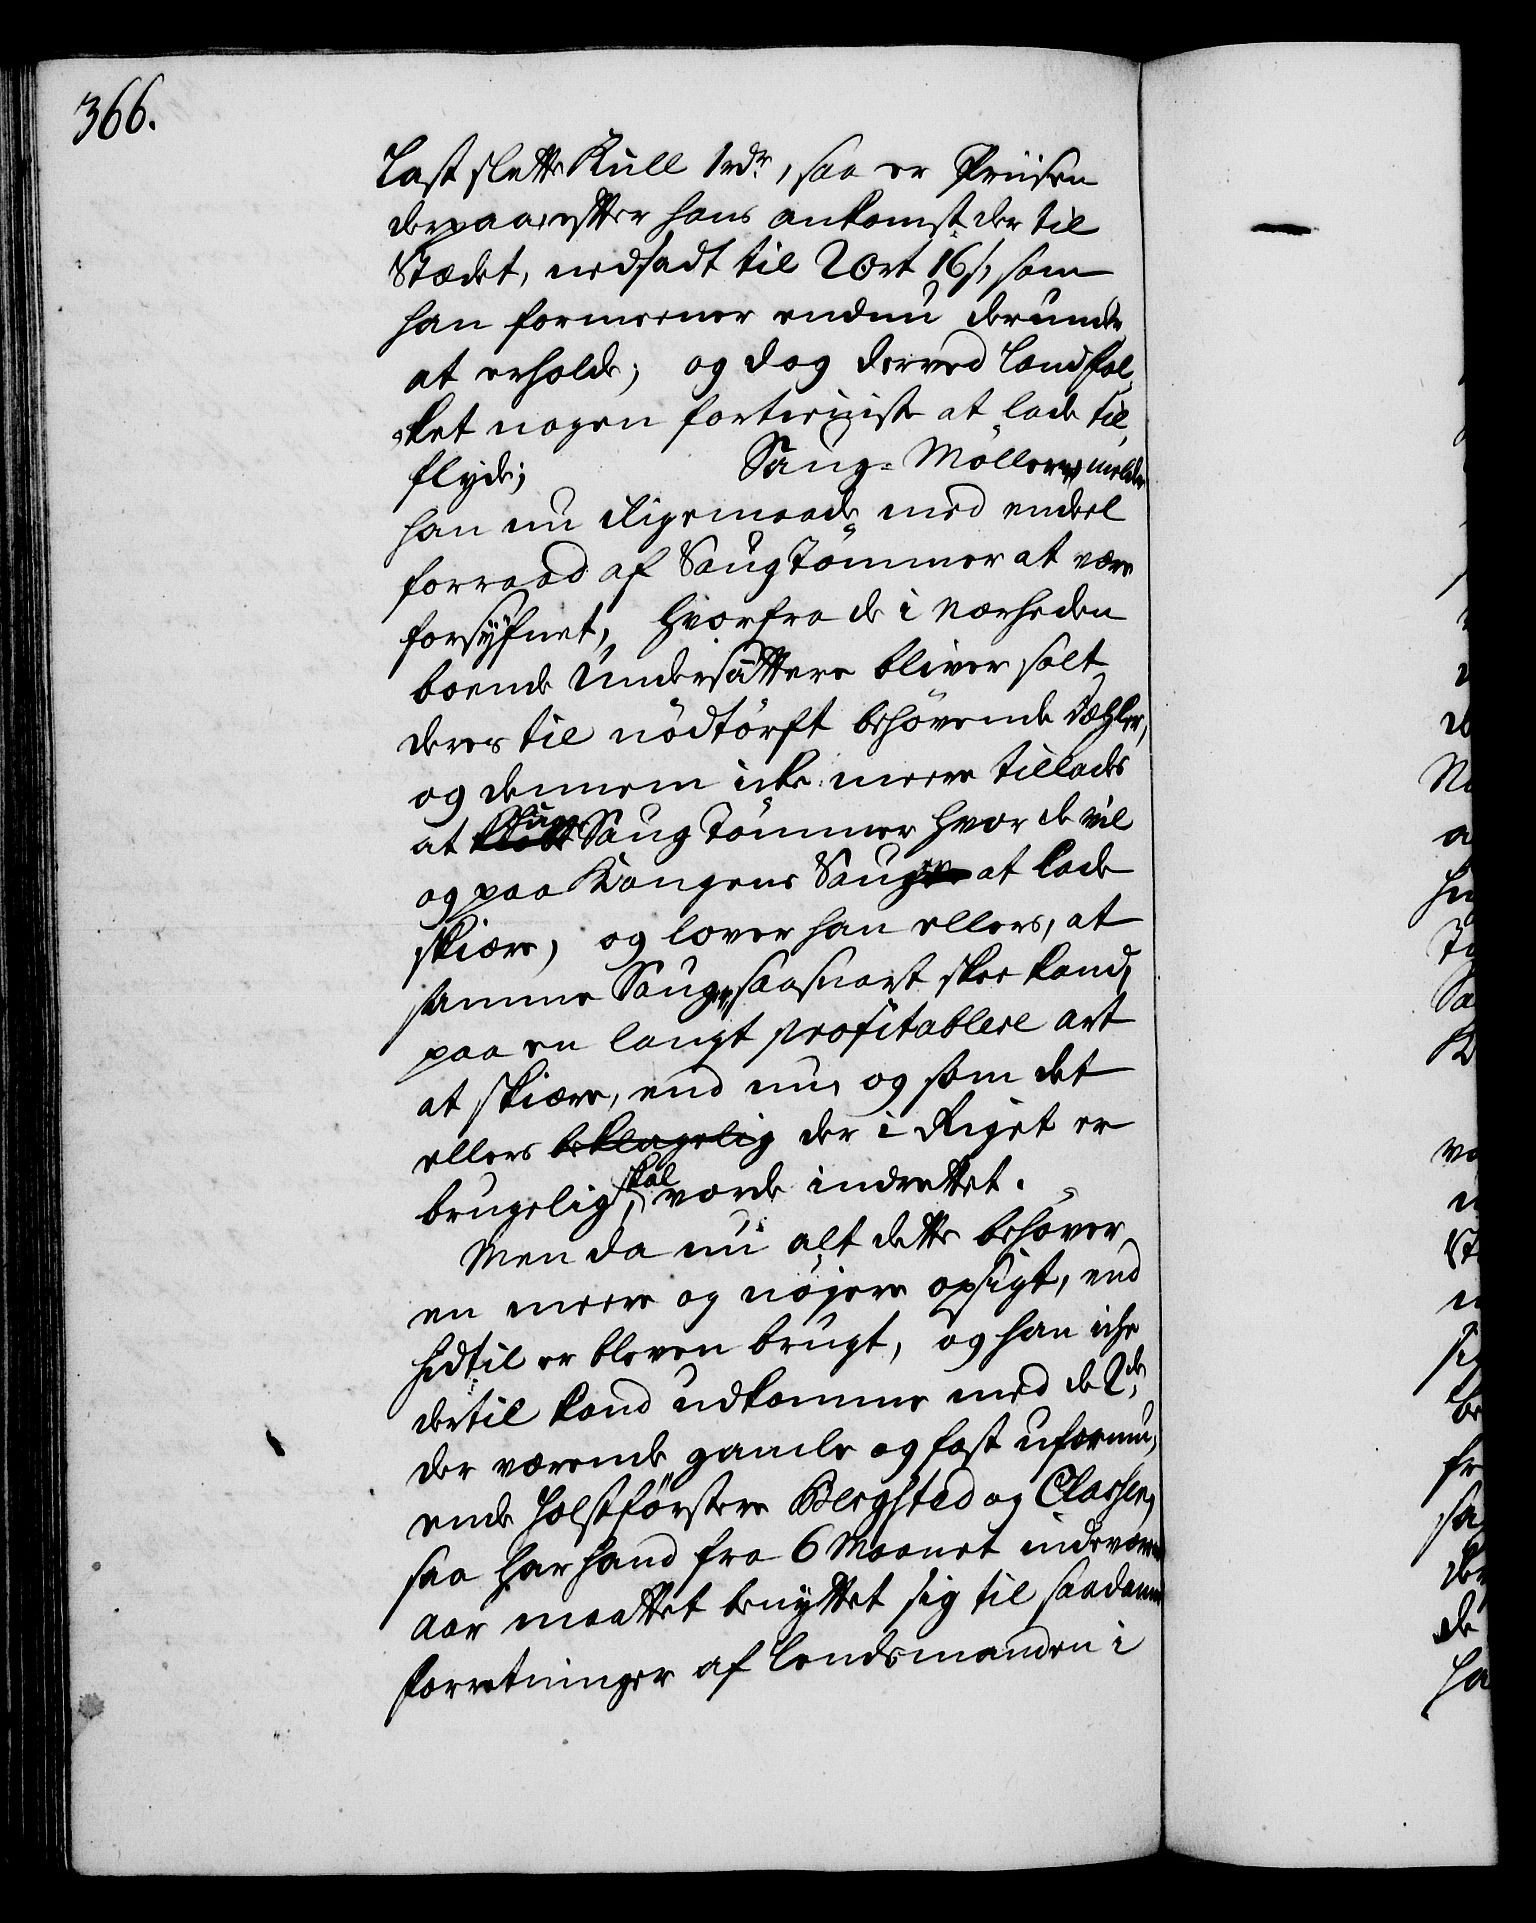 366.
Last slette Kull 1rdr, saa er Priisen
derpaa, efter hans ankomst der til
Stædet, nedsadt til 2 ort 16 s, som
han formeener endnu derunder
at erholde; og dog derved Landfol-
ket nogen fortieniste at lade til-
flyde; Saug-Möllerne melder
han nu ligemaade med endeel
forraad af Saugtömmer at være
forsÿfnet, hvorfra de i Nærheden
boende Undersåttere bliver solt
deres til nödtörft behövende Dæhler,
og dennem icke meere tillades
at hugge Saug Tömmer hvor de vil
og paa Kongens Sauger at lade
skiære, og lover han ellers, at
samme Sauger, saasnart skee kand,
paa en langt profitablere art
at skiære, end nu, og som det
ellers beklagelig der i Riget er
brugelig, skal vorde indrettet.
Men da nu alt dette behöver
en meere og nöjere opsigt, end
hidtil er bleven brugt, og han iche
dertil kand udkomme med de 2de
der værende gamle og fast uformu-
ende Holtzförstere Bergsted og Classen,
saa har hand fra 6 Maanet indeværende
aar maattet benÿttet sig til saadanne
forretninger af Lendsmanden i